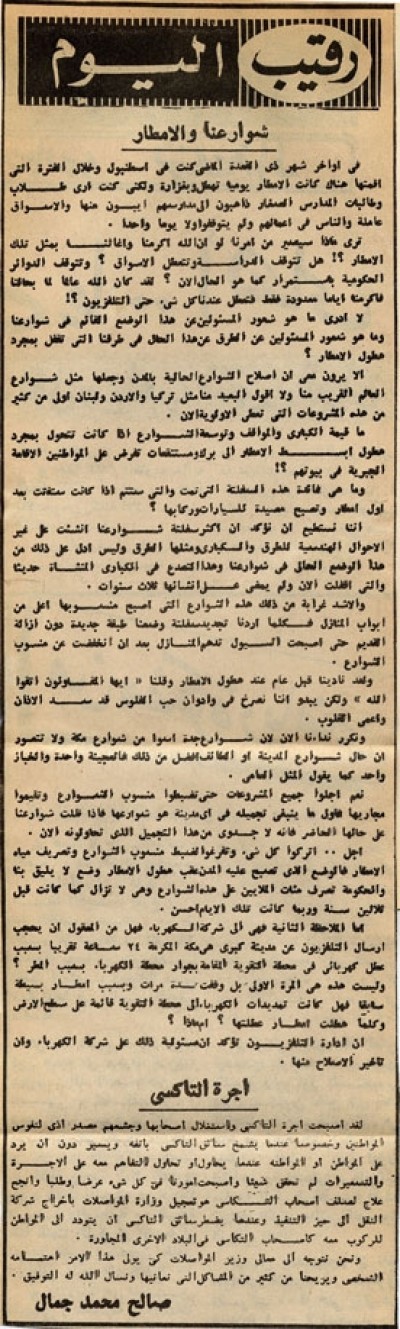 رقيب اليوم
شوارعنا والامطار
في أواخر شهر ذي القعدة الماضي كنت في اسطنبول وخلال الفترة التي
اقمتها هناك كانت الامطار يوميا تهطل وبغزارة ولكني كنت ارى طلاب
وطالبات المدارس الصغار ذاهبون الى مدارسهم ايبون منها والاسواق
عاملة والناس في اعمالهم ولم يتوقفوا ولا يوما واحدا .
ترى ماذا سيصير من امرنا لو ان الله اكرمنا واغاثنا بمثل تلك
الامطار ؟! هل تتوقف الدراسة وتتعطل الاسواق ؟ وتتوقف الدوائر
الحكومية باستمرار كما هو الحال الان ؟ لقد كان الله عالما لما بحالنا
فاكرمنا اياما معدودة فقط فتعطل عندنا كل شيء حتى التلفزيون ؟!
لا ادرى ما هو شعور المسئولين عن هذا الوضع القائم في شوارعنا
وما هو شعور المسئولين عن الطرق عن هذا الحال في طرقنا التي تقفل بمجرد
هطول الامطار ؟
الا يرون معي ان اصلاح الشوارع الحالية بالمدن وجعلها مثل شوارع
العالم القريب منا ولا اقول البعيد عنا مثل تركيا والاردن ولبنان اولى من كثير
من هذه المشروعات التي تعطى الاولوية الان .
ما قيمة الكبارى والمواقف وتوسعة الشوارع اذا كانت تتحول بمجرد
هطول ابسط الامطار الى برك ومستنقعات تفرض على المواطنين الاقامة
الجبرية في بيوتهم ؟!
وما هي فائدة هذه السفلتة التي تمت والتي ستتم اذا كانت ستفتت بعد
اول امطار وتصبح مصيدة للسيارات وركابها ؟
اننا نستطيع ان نؤكد ان اكثر سفلتة شوارعنا انشئت على غير
الاحوال الهندسية للطرق والكبارى ومثلها الطرق وليس ادل على ذلك من
هذا الوضع الحالى في شوارعنا وهذا التصدع في الكبارى المنشأة حديثا
والتي اقفلت الان ولم يمض على انشائها ثلاث سنوات .
والاشد غرابة من ذلك هذه الشوارع التي اصبح منسوبها اعلى من
ابواب المنازل فكلما اردنا تجديد سفلتة وضعنا طبقة جديدة دون ازالة
القديم حتى اصبحت السيول تدهم المنازل بعد ان انخفضت عن منسوب
الشوارع .
ولقد نادينا قبل عام عند هطول الامطار وقلنا « ايها المقاولون اتقوا
الله » ولكن يبدو اننا نصرخ في واد وان حب الفلوس قد سد الاذان
واعمى القلوب .
ونكرر نداءنا الان لان شوارع جدة اسوا من شوارع مكة ولا نتصور
ان حال شوارع المدينة او الطائف افضل من ذلك فالعجينة واحدة والخباز
واحد كما يقول المثل العامي .
نعم اجلوا جميع المشروعات حتى تضبطوا منسوب الشوارع وتقيموا
مجاريها فاول ما ينبغى تجميله في اى مدينة هو شوارعها فاذا ظلت شوارعنا
على حالها الحاضر فانه لا جدوى من هذا التجميل الذى تحاولونه الان .
اجل .. اتركوا كل شيء وتفرغوا لضبط منسوب الشوارع وتصريف مياه
الامطار فالوضع الذى تصبح عليه المدن عقب هطول الامطار وضع لا يليق بنا
والحكومة تصرف مئات الملايين على هذه الشوارع وهى لا تزال كما كانت قبل
ثلاثين سنة وربما كانت تلك الايام احسن .
اما الملاحظة الثانية فهي الى شركة الكهرباء فهل من المعقول ان يحجب
ارسال التلفزيون عن مدينة كبرى هي مكة المكرمة ٢٤ ساعة تقريبا بسبب
عطل كهربائى في محطة التقوية المقامة بجوار محطة الكهرباء بسبب المطر ؟
وليست هذه هي المرة الاولى بل وقفت عدة مرات وبسبب امطار بسيطة
سابقا فهل كانت تمديدات الكهرباء الى محطة التقوية قائمة على سطح الارض
وكلما هطلت امطار عطلتها ؟ ام ماذا ؟
ان ادارة التلفزيون تؤكد ان مسئولية ذلك على شركة الكهرباء وان
تاخير الاصلاح منها .
اجرة التاكسي
لقد اصبحت اجرة التاكسي واستغلال اصحابها وجشعهم مصدر اذى لنفوس
المواطنين وخصوصا عندما يشمخ سائق التاكسي بانفه ويسير دون ان يرد
على المواطن او المواطنه عندما يحاول او تحاول التفاهم معه على الاجرة
والتسعيرات لم تحقق شيئا واصبحت امورنا في كل شيء عرضا وطلبا وانجح
علاج لصلف اصحاب التاكسي هو تعجيل وزارة المواصلات باخراج شركة
النقل الى حيز التنفيذ وعندها يضطر سائق التاكسي ان يتودد الى المواطن
للركوب معه كاصحاب التكاسى في البلاد الاخرى المجاورة .
ونحن نتوجه الى معالي وزير المواصلات كى يولى هذا الامر اهتمامه
الشخصى ويريحنا من كثير من المشاكل التي نعانيها ونسأل الله له التوفيق .
صالح محمد جمال